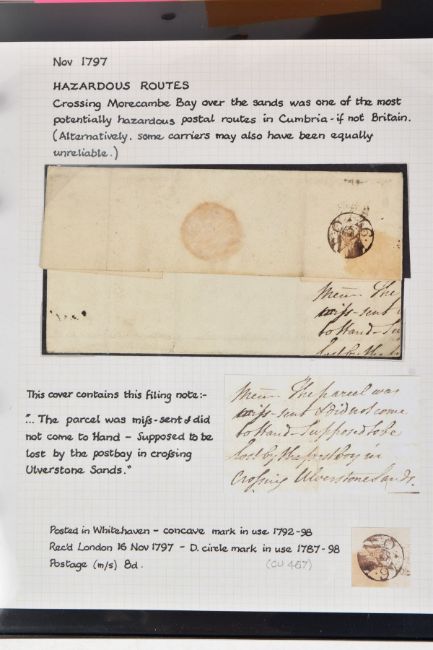 Nov 1797
HAZARDOUS ROUTES
Crossing Morecambe Bay over the sands was one of the most
potentially hazardous postal routes in Cumbria - if not Britain.
(Alternatively, some carriers may also have been equally
unreliable.)
Mem. The
miſs-sent
to Hand - Su
lost by the
This cover contains this filing note:-
".. The parcel was miſs-sent & did
not come to Hand - Supposed to be
lost by the postboy in croſsing
Ulverstone Sands."
Mem. The parcel was
miſs-sent & did not come
to Hand - Supposed to be
lost by the post boy in
croſsing Ulverstone Sands.
Posted in Whitehaven - concave mark in use 1792-98
Rec'd London 16 Nov 1797 - D. circle mark in use 1787-98
Postage (m/s) 8d.
(CU 467)